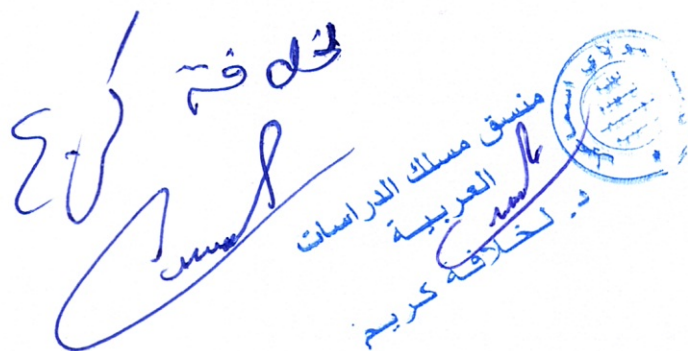 لخلافة
كريم
منسق مسلك الدراسات
العربية
د. لخلافة كريم
مولاي اسم